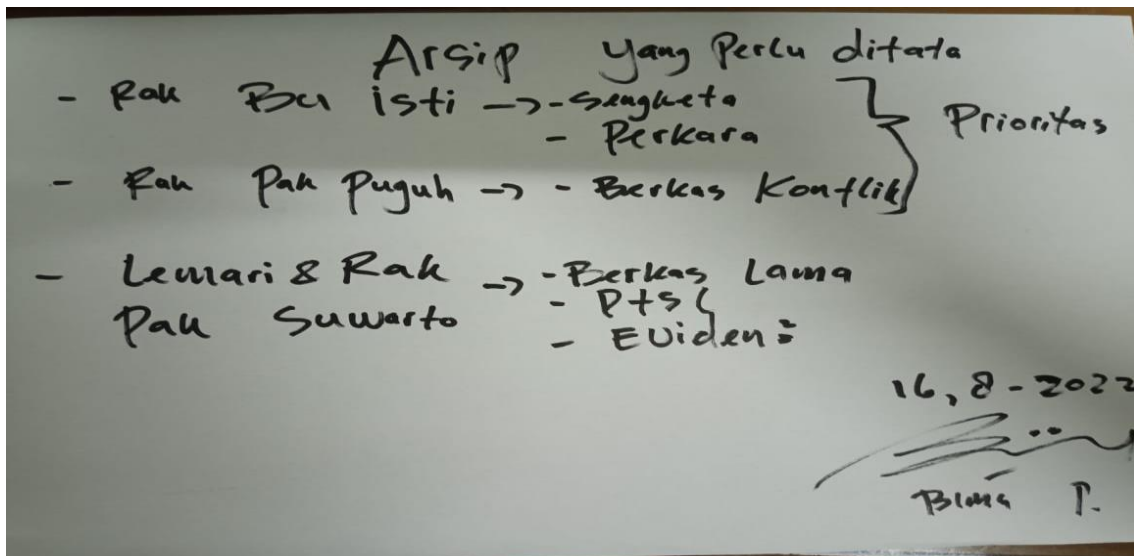 Arsip yang Perlu ditata
- Rak Bu isti → - Sengketa
- Perkara
Prioritas
- Rak Pak Puguh → - Berkas Konflik
- Lemari & Rak → - Berkas Lama
Pak Suwarto - PTSL
- Eviden
16, 8 - 2022
Bima P.